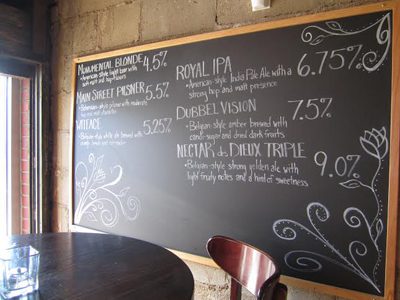 MONUMENTAL BLONDE 4.5%
• American-style light beer with
soft malt and hop flavors
MAIN STREET PILSNER 5.5%
• Bohemian-style pilsner with moderate
hop and malt character
WITFACE 5.25%
• Belgian style white ale brewed with
orange peel and coriander
ROYAL IPA 6.75%
• American-style India Pale Ale with a
strong hop and malt presence
DUBBEL VISION 7.5%
• Belgian-style amber brewed with
candi-sugar and dried dark fruits
NECTAR des DIEUX TRIPLE 9.0%
• Belgian-style strong golden ale with
light fruity notes and a hint of sweetness